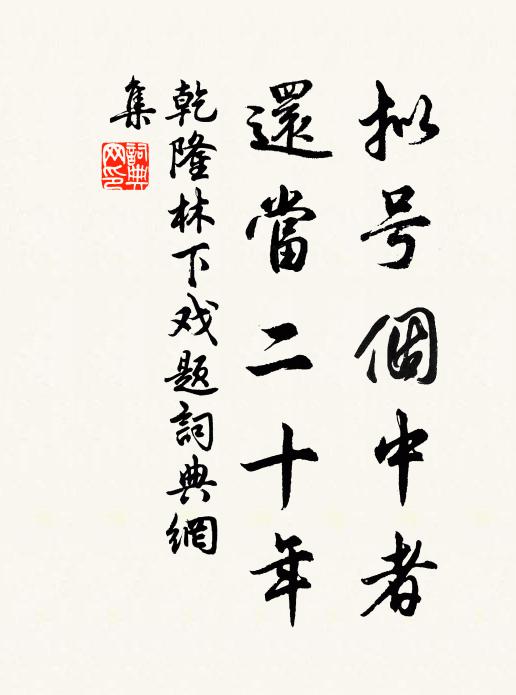 拟号個中者
還當二十年
乾隆林下戏题詞典網
集
詞典网印